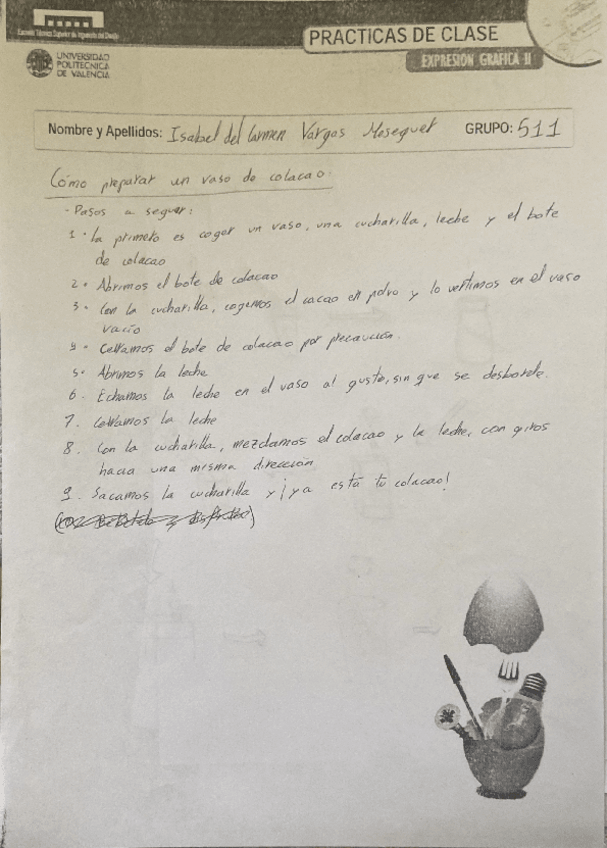 Escuela Técnica Superior de Ingeniería del Diseño
UNIVERSIDAD
POLITECNICA
DE VALENCIA
PRACTICAS DE CLASE
EXPRESIÓN GRÁFICA II
Nombre y Apellidos: Isabel del Carmen Vargas Meseguer GRUPO: 511
Cómo preparar un vaso de colacao.
- Pasos a seguir:
1. Lo primero es coger un vaso, una cucharilla, leche y el bote
de colacao
2. Abrimos el bote de colacao
3. Con la cucharilla, cogemos el cacao en polvo y lo vertimos en el vaso
vacío
4. Cerramos el bote de colacao por precaución.
5. Abrimos la leche
6. Echamos la leche en el vaso al gusto, sin que se desborde.
7. Cerramos la leche
8. Con la cucharilla, mezclamos el colacao y la leche, con giros
hacia una misma dirección
9. Sacamos la cucharilla y ¡ya está tu colacao!